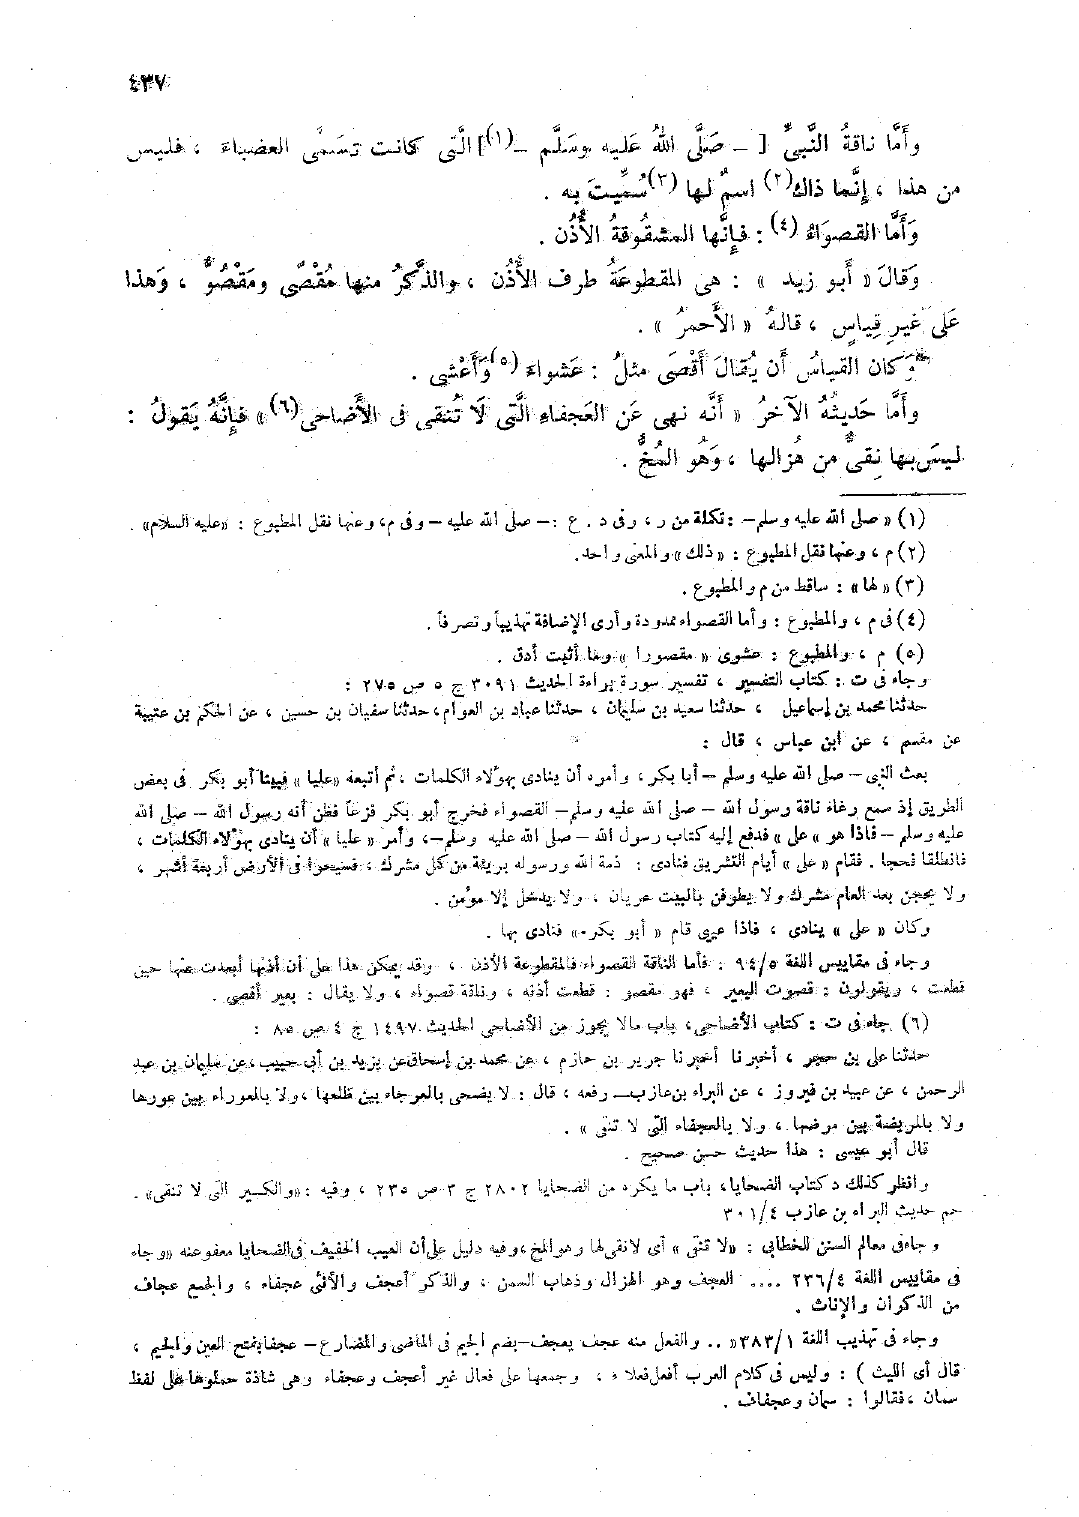 ٤٣٧
وأَمَّا ناقةُ النَّبىِّ [ – صَلَّى اللهُ عَليه وسَلَّم –(١)] الَّتى كانت تسَمَّى العضباءَ ، فليس
من هذا ، إِنَّما ذاك(٢) اسمٌ لها (٣) سُمِّيتَ به .
وَأَمَّا القصواءُ (٤) : فإِنَّها المشقُوقةُ الأُذُن .
وَقالَ « أَبو زيد » : هى المقطوعَةُ طرف الأُذُن ، والذَّكَرُ منها مُقْصًى ومَقْصُوٌّ ، وَهذا
عَلَى غيرِ قِياسٍ ، قالهُ « الأَحمرُ » .
وَكان القياسُ أَن يُقالَ أَقْصَى مثلُ : عَشواءَ (٥) وَأَعْشى .
وأَما حَديثهُ الآخرُ « أَنَّه نهى عَن العَجفاءِ الَّتى لَا تُنقى فى الأَضاحى(٦) » فإِنَّهُ يَقولُ :
ليسَ بها نِقىٌ من هُزالها ، وَهُو المُخُّ .
(١) « صلى الله عليه وسلم – : تكملة من ر ، وفى د . ع : – صلى الله عليه – وفى م، وعنها نقل المطبوع : «عليه السلام» .
(٢) م ، وعنها نقل المطبوع : « ذلك » والمعنى واحد.
(٣) « لها » : ساقط من م والمطبوع .
(٤) فى م ، والمطبوع : وأما القصواء ممدودة وأرى الإضافة تهذيباً وتصرفاً .
(٥) م ، والمطبوع : عشوى « مقصورا » وما أثبت أدق .
وجاء فى ت : كتاب التفسير ، تفسير سورة براءة الحديث ٣٠٩١ ج ٥ ص ٢٧٥ :
حدثنا محمد بن إسماعيل ، حدثنا سعيد بن سليمان ، حدثنا عباد بن العوام، حدثنا سفيان بن حسين ، عن الحكم بن عتيبة
عن مقسم ، عن ابن عباس ، قال :
بعث النبى – صلى الله عليه وسلم – أبا بكر ، وأمره أن ينادى بهؤلاء الكلمات ، ثم أتبعه «عليا » فبينا أبو بكر فى بعض
الطريق إذ سمع رغاء ناقة رسول الله – صلى الله عليه وسلم – القصواء فخرج أبو بكر فزعاً فظن أنه رسول الله – صلى الله
عليه وسلم – فاذا هو « على » فدفع إليه كتاب رسول الله – صلى الله عليه وسلم –، وأمر « عليا » أن ينادى بهؤلاء الكلمات ،
فانطلقا فحجا . فقام « على » أيام التشريق فنادى : ذمة الله ورسوله بريئة من كل مشرك ، فسيحوا فى الأرض أربعة أشهر ،
ولا يحجن بعد العام مشرك ولا يطوفن بالبيت عريان ، ولا يدخل إلا مؤمن .
وكان « على » ينادى ، فاذا عيى قام « أبو بكر » فنادى بها .
وجاء فى مقاييس اللغة ٩٤/٥ : فأما الناقة القصواء فالمقطوعة الأذن ، وقد يمكن هذا على أن أذنها أبعدت عنها حين
قطعت ، ويقولون : قصوت البعير ، فهو مقصو : قطعت أذنه ، وناقة قصواء ، ولا يقال : بعير أقصى .
(٦) جاء فى ت : كتاب الأضاحى، باب مالا يجوز من الأضاحى الحديث ١٤٩٧ ج ٤ ص ٨٥ :
حدثنا على بن حجر ، أخبرنا أخبرنا جرير بن حازم ، عن محمد بن إسحاق عن يزيد بن أبى حبيب ، عن سليمان بن عبد
الرحمن ، عن عبيد بن فيروز ، عن البراء بن عازب – رفعه ، قال : لا يضحى بالعرجاء بين ظلعها ، ولا بالعوراء بين عورها
ولا بالمريضة بين مرضها ، ولا بالعجفاء التى لا تنقى » .
قال أبو عيسى : هذا حديث حسن صحيح .
وانظر كذلك د كتاب الضحايا، باب ما يكره من الضحايا ٢٨٠٢ ج ٣ ص ٢٣٥ ، وفيه : «والكسير التى لا تنقى» .
حم حديث البراء بن عازب ٣٠١/٤
وجاء فى معالم السنن للخطابى : «لا تنقى » أى لانقى لها وهو المخ ، وفيه دليل على أن العيب الخفيف فى الضحايا معفو عنه «وجاء
فى مقاييس اللغة ٢٣٦/٤ .... العجف وهو الهزال وذهاب السمن ، والذكر أعجف والأنثى عجفاء ، والجمع عجاف
من الذكران والإناث .
وجاء فى تهذيب اللغة ٣٨٣/١ « .. والفعل منه عجف يعجف – بضم الجيم فى الماضى والمضارع – عجفا بفتح العين والجيم ،
قال أى الليث ) : وليس فى كلام العرب أفعل فعلاء ، وجمعها على فعال غير أعجف وعجفاء وهى شاذة حملوها على لفظ
سمان ، فقالوا : سمان وعجاف .